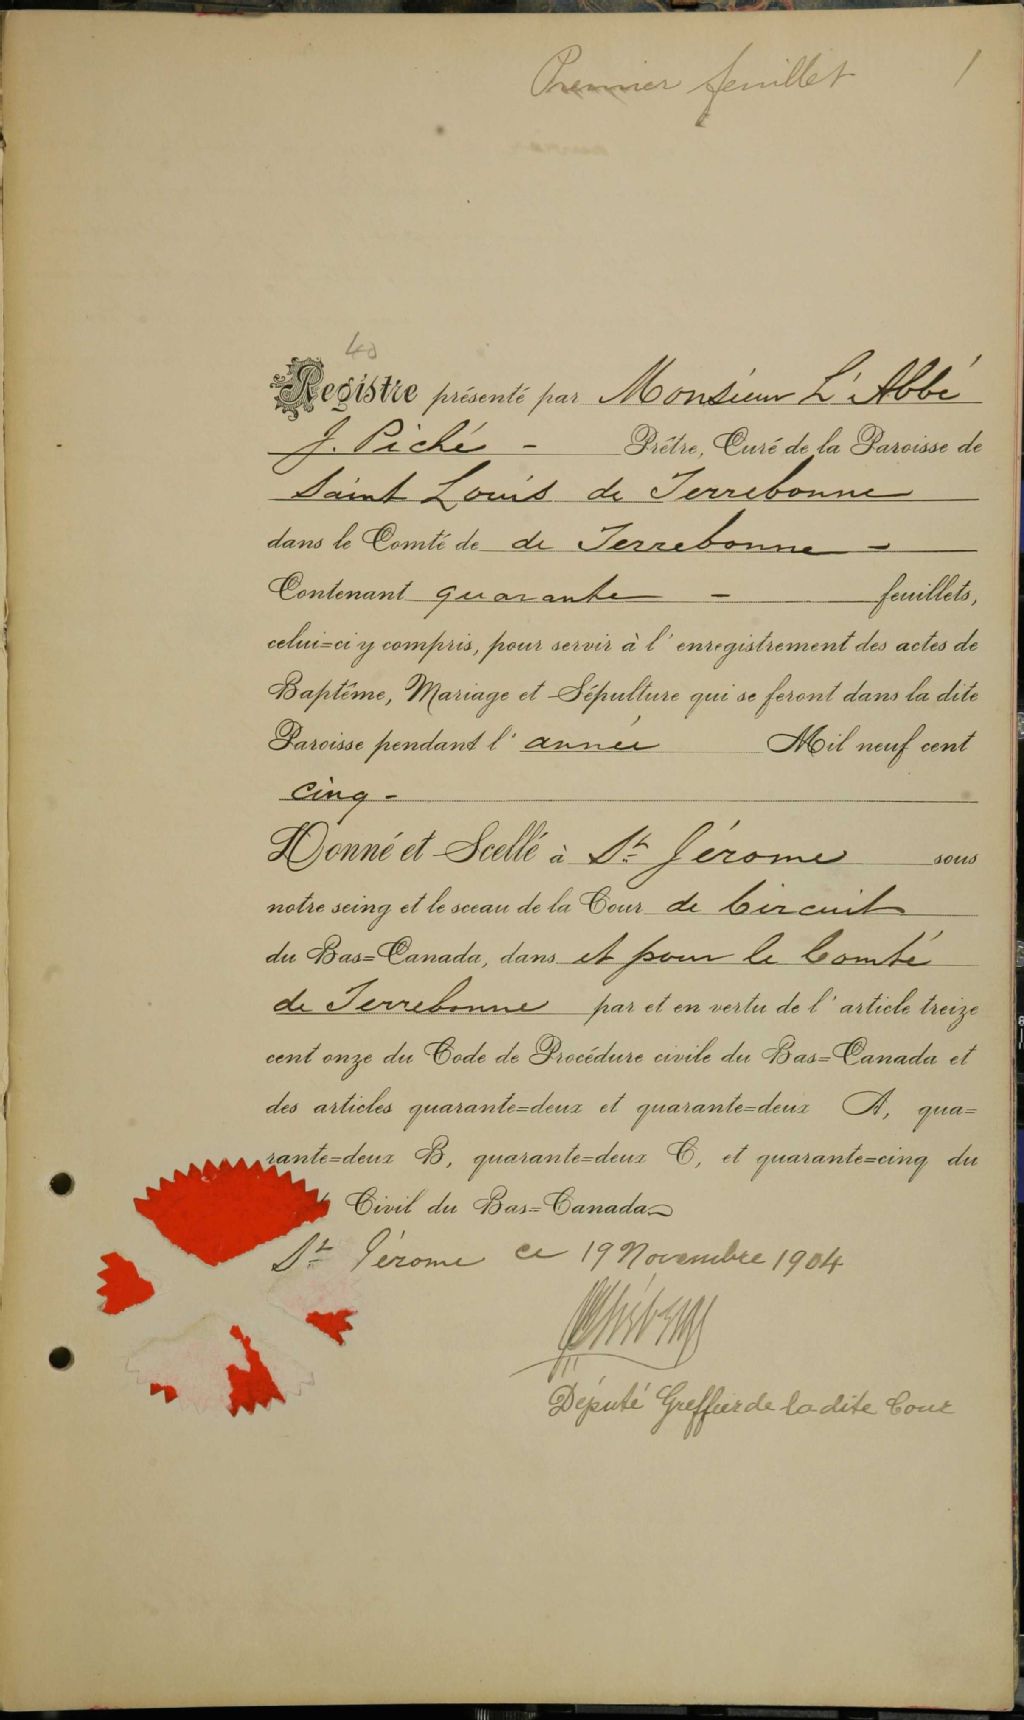 Premier feuillet 1
40
Registre présenté par Monsieur L'Abbé
J. Piché - Prêtre, Curé de la Paroisse de
Saint Louis de Terrebonne
dans le Comté de de Terrebonne -
Contenant quarante - feuillets,
celui=ci y compris, pour servir à l'enregistrement des actes de
Baptême, Mariage et Sépulture qui se feront dans la dite
Paroisse pendant l'année Mil neuf cent
cinq -
Donné et Scellé à St Jérome sous
notre seing et le sceau de la Cour de Circuit
du Bas=Canada, dans et pour le Comté
de Terrebonne par et en vertu de l'article treize
cent onze du Code de Procédure civile du Bas=Canada et
des articles quarante=deux et quarante=deux A, qua=
rante=deux B, quarante=deux C, et quarante=cinq du
Civil du Bas=Canada
St Jérome ce 19 Novembre 1904
Député Greffier de la dite Cour